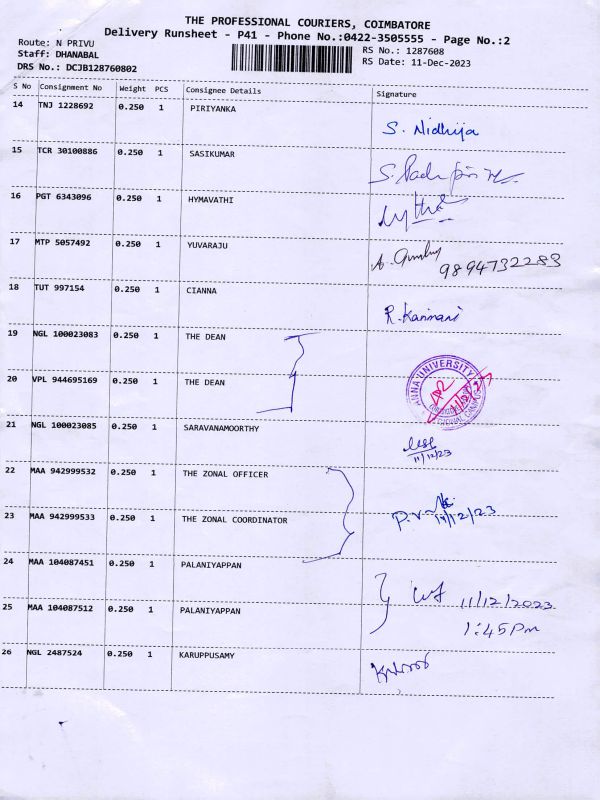 THE PROFESSIONAL COURIERS, COIMBATORE
Delivery Runsheet - P41 - Phone No.:0422-3505555 - Page No.:2
Route: N PRIVU RS No.: 1287608
Staff: DHANABAL RS Date: 11-Dec-2023
DRS No.: DCJB128760802
S No Consignment No Weight PCS Consignee Details Signature
14 TNJ 1228692 0.250 1 PIRIYANKA
S. Nidhija
15 TCR 30100886 0.250 1 SASIKUMAR
16 PGT 6343096 0.250 1 HYMAVATHI
17 MTP 5057492 0.250 1 YUVARAJU
9894732283
18 TUT 997154 0.250 1 CIANNA
R. Kanmani
19 NGL 100023083 0.250 1 THE DEAN
20 VPL 944695169 0.250 1 THE DEAN
ANNA UNIVERSITY
21 NGL 100023085 0.250 1 SARAVANAMOORTHY
11/12/23
22 MAA 942999532 0.250 1 THE ZONAL OFFICER
23 MAA 942999533 0.250 1 THE ZONAL COORDINATOR
24 MAA 104087451 0.250 1 PALANIYAPPAN
11/12/2023
25 MAA 104087512 0.250 1 PALANIYAPPAN
1:45 Pm
26 NGL 2487524 0.250 1 KARUPPUSAMY